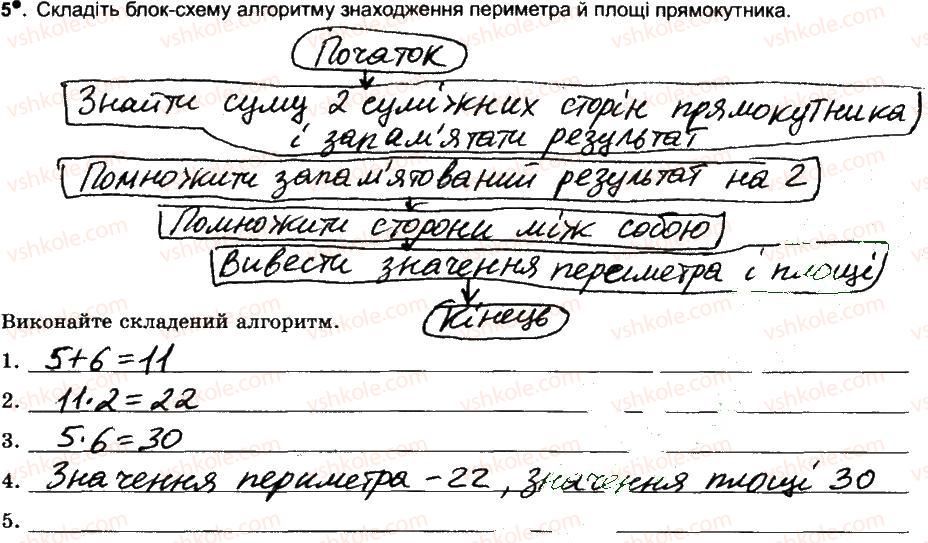 5•. Складіть блок-схему алгоритму знаходження периметра й площі прямокутника.
Початок
Знайти суму 2 суміжних сторін прямокутника
і запам'ятати результат
Помножити запам'ятований результат на 2
Помножити сторони між собою
Вивести значення периметра і площі
Кінець
Виконайте складений алгоритм.
1. 5+6=11
2. 11·2=22
3. 5·6=30
4. Значення периметра - 22, значення площі 30
5.